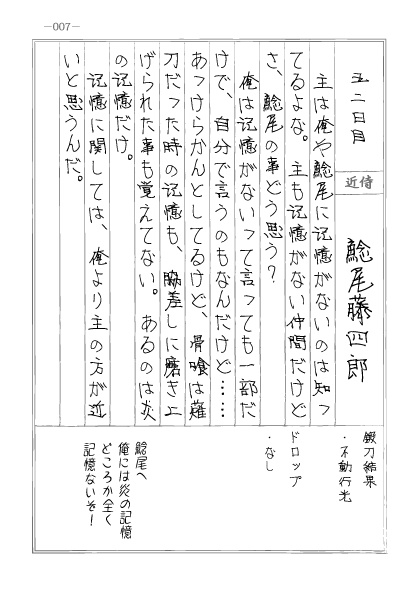 —007—
五二日目
近侍
鯰尾藤四郎
主は俺や鯰尾に记憶がないのは知っ
てるよな。主も记憶がない仲間だけど
さ、鯰尾の事どう思う？
俺は记憶がないって言っても一部だ
けで、自分で言うのもなんだけど……
あっけらかんとしてるけど、骨喰は薙
刀だった時の记憶も、脇差しに磨き上
げられた事も覚えてない。あるのは炎
の记憶だけ。
记憶に関しては、俺より主の方が近
いと思うんだ。
鍛刀結果
・不動行光
ドロップ
・なし
鯰尾へ
俺には炎の記憶
どころか全く
記憶ないぞ！